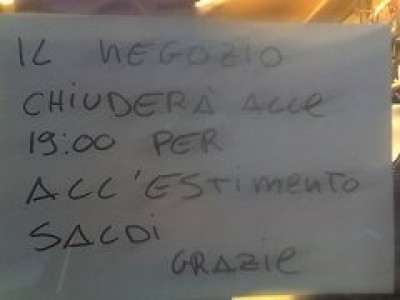 IL NEGOZIO
CHIUDERÀ ALLE
19:00 PER
ALL'ESTIMENTO
SALDI
GRAZIE